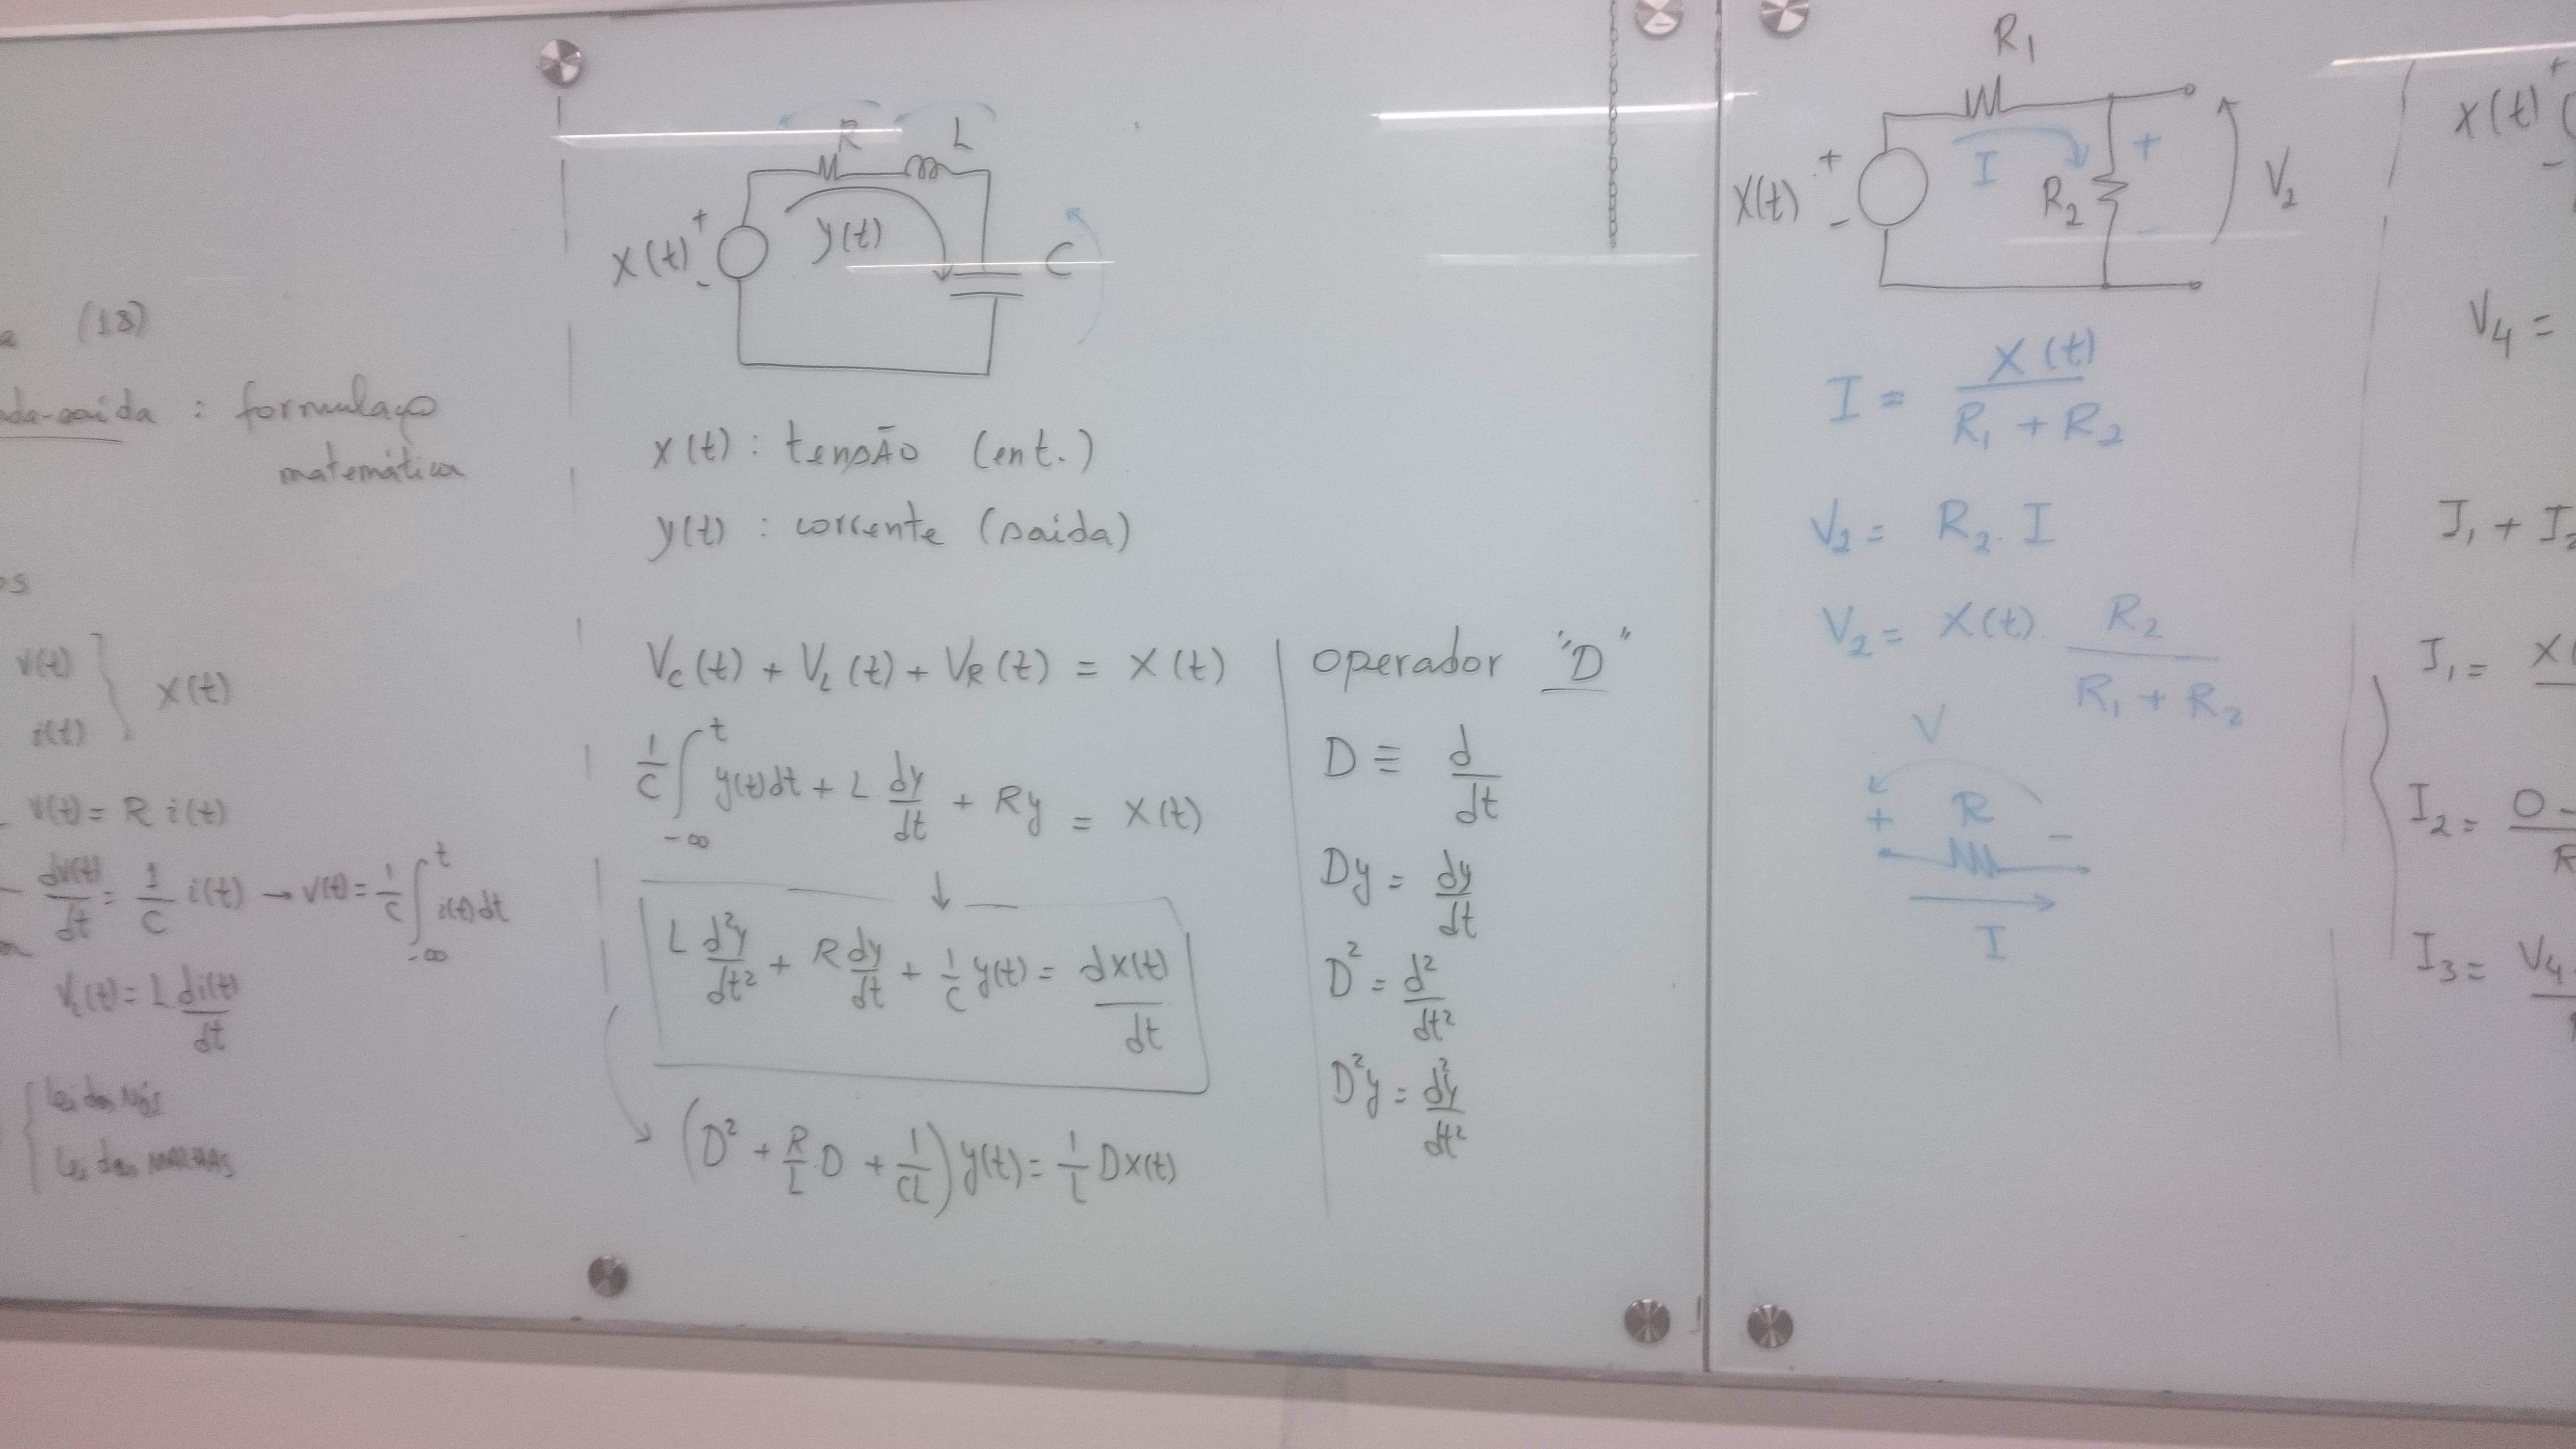 (1.8)
: formulação
matemática
v(t)
i(t)
x(t)
v(t) = R i(t)
dv(t)/dt = 1/C i(t) → v(t) = 1/C ∫_{-∞}^{t} i(t)dt
V_L(t) = L di(t)/dt
Lei dos Nós
Lei das MALHAS
R L
x(t) + -
y(t)
C
x(t) : tensão (ent.)
y(t) : corrente (saida)
V_C(t) + V_L(t) + V_R(t) = x(t)
1/C ∫_{-∞}^{t} y(t)dt + L dy/dt + Ry = x(t)
↓
L d²y/dt² + R dy/dt + 1/C y(t) = dx(t)/dt
(D² + R/L D + 1/CL) y(t) = 1/L Dx(t)
operador "D"
D ≡ d/dt
Dy = dy/dt
D² = d²/dt²
D²y = d²y/dt²
R₁
x(t) + -
I
R₂ + -
V₂
I = x(t)/(R₁ + R₂)
V₂ = R₂ . I
V₂ = x(t) . R₂/(R₁ + R₂)
V
+ R -
I
x(t) + -
V₄ =
I₁ + I₂
I₁ = x(
I₂ = 0 -
I₃ = V₄